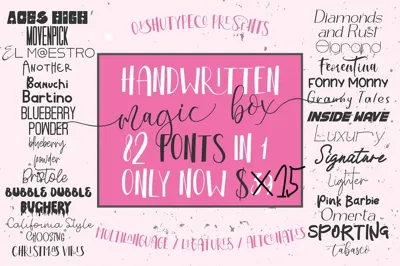 QISHUTYPECO PRESENTS
ACES HIGH
MOVENPICK
EL MAESTRO
Another
Banuchi
Bartino
BLUEBERRY
POWDER
blueberry
powder
Bristole
BUBBLE DUBBLE
BUGHERY
California Style
CHOOSTNG
CHRISTMAS VIRUS
HANDWRITTEN
magic box
82 FONTS IN 1
ONLY NOW $ x 15
MULTILANGUAGE / LIGATURES / ALTERNATES
Diamonds
and Rust
Elgrand
Fiorentina
FONNY MONNY
Granny Tales
INSIDE WAVE
Luxury
Signature
Lighter
Pink Barbie
Omerta
SPORTING
Tabasco